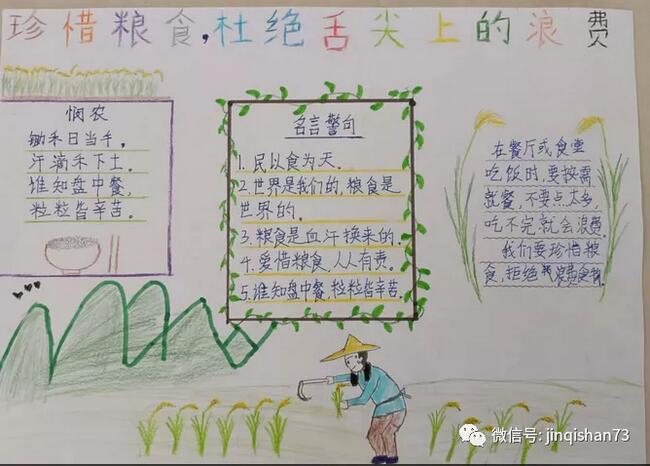 珍惜粮食,杜绝舌尖上的浪费
悯农
锄禾日当午,
汗滴禾下土。
谁知盘中餐,
粒粒皆辛苦。
名言警句
1.民以食为天。
2.世界是我们的,粮食是
世界的.
3.粮食是血汗换来的.
4.爱惜粮食,人人有责.
5.谁知盘中餐,粒粒皆辛苦.
在餐厅或食堂
吃饭时,要按需
就餐,不要点太多,
吃不完就会浪费.
我们要珍惜粮
食,拒绝浪费食物.
微信号: jinqishan73